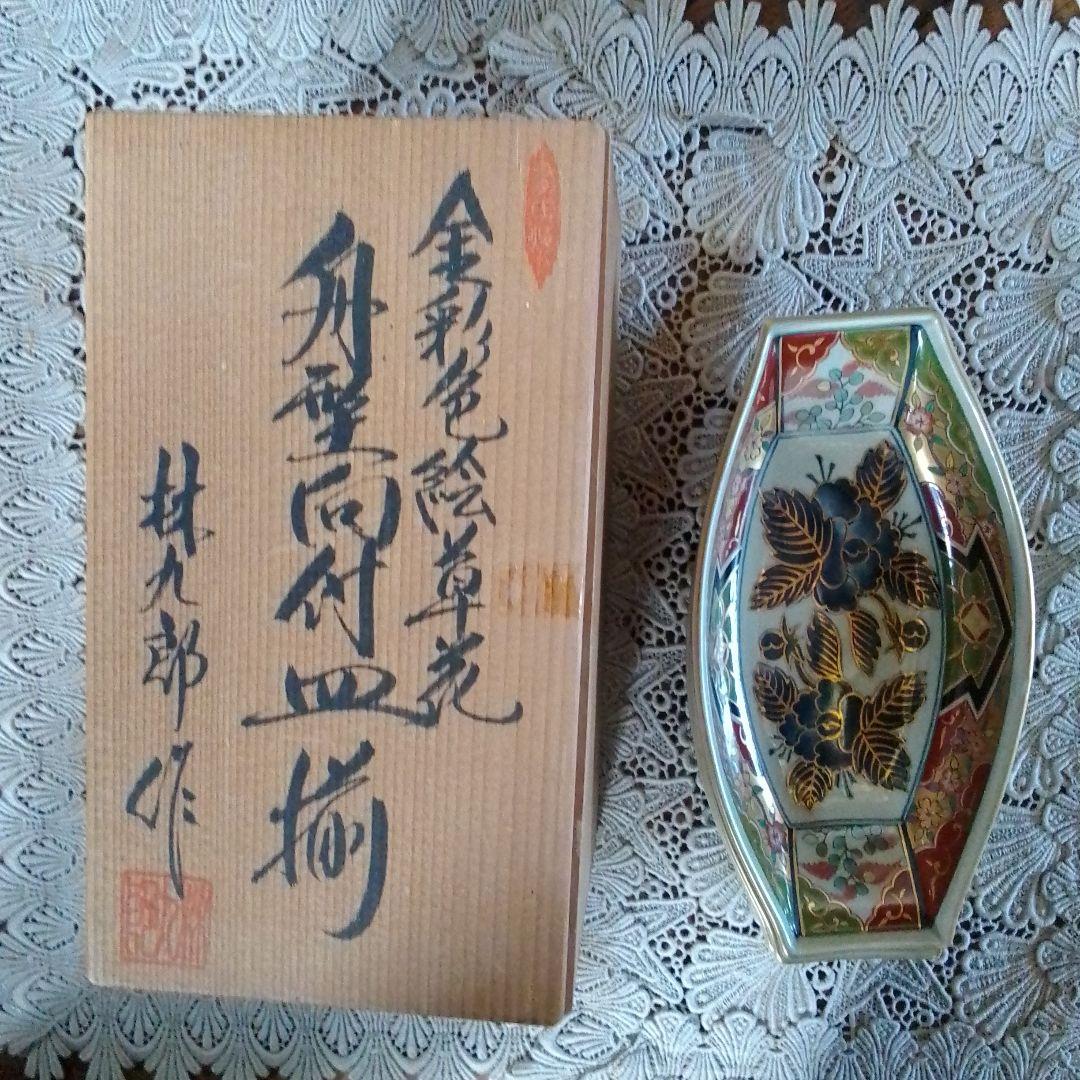 金彩色絵草花
舟型向付皿揃
林九郎作